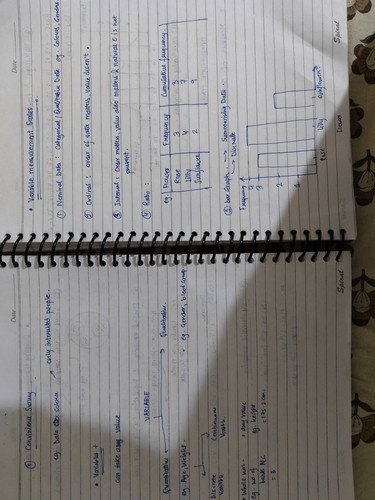 Date
④ Convenience Survey
eg. Data Science → only interested people.
• Variable :
can take any value
VARIABLE
Quantitative
Qualitative
eg. Age, Weight
• eg. Gender, blood Group
Discrete
Continuous
• Whole num
eg. no of
bank A/C
eg. height
Spiral
Date
• Variable measurement Scales.
① Nominal Data : Categorical / Qualitative Data eg. Colours, Gender
② Ordinal : order of data matters, value doesn't.
③ Interval : Order matters, value also matters & natural 0 is not
present.
④ Ratio :
eg Flower Frequency Cumulative frequency
Rose 3 3
Lilly 4 7
Sunflower 2 9
① Bar Graph → Summarising Data.
→ Discrete
Frequency
3
2
1
Rose Lilly Sunflower
Flower
Spiral